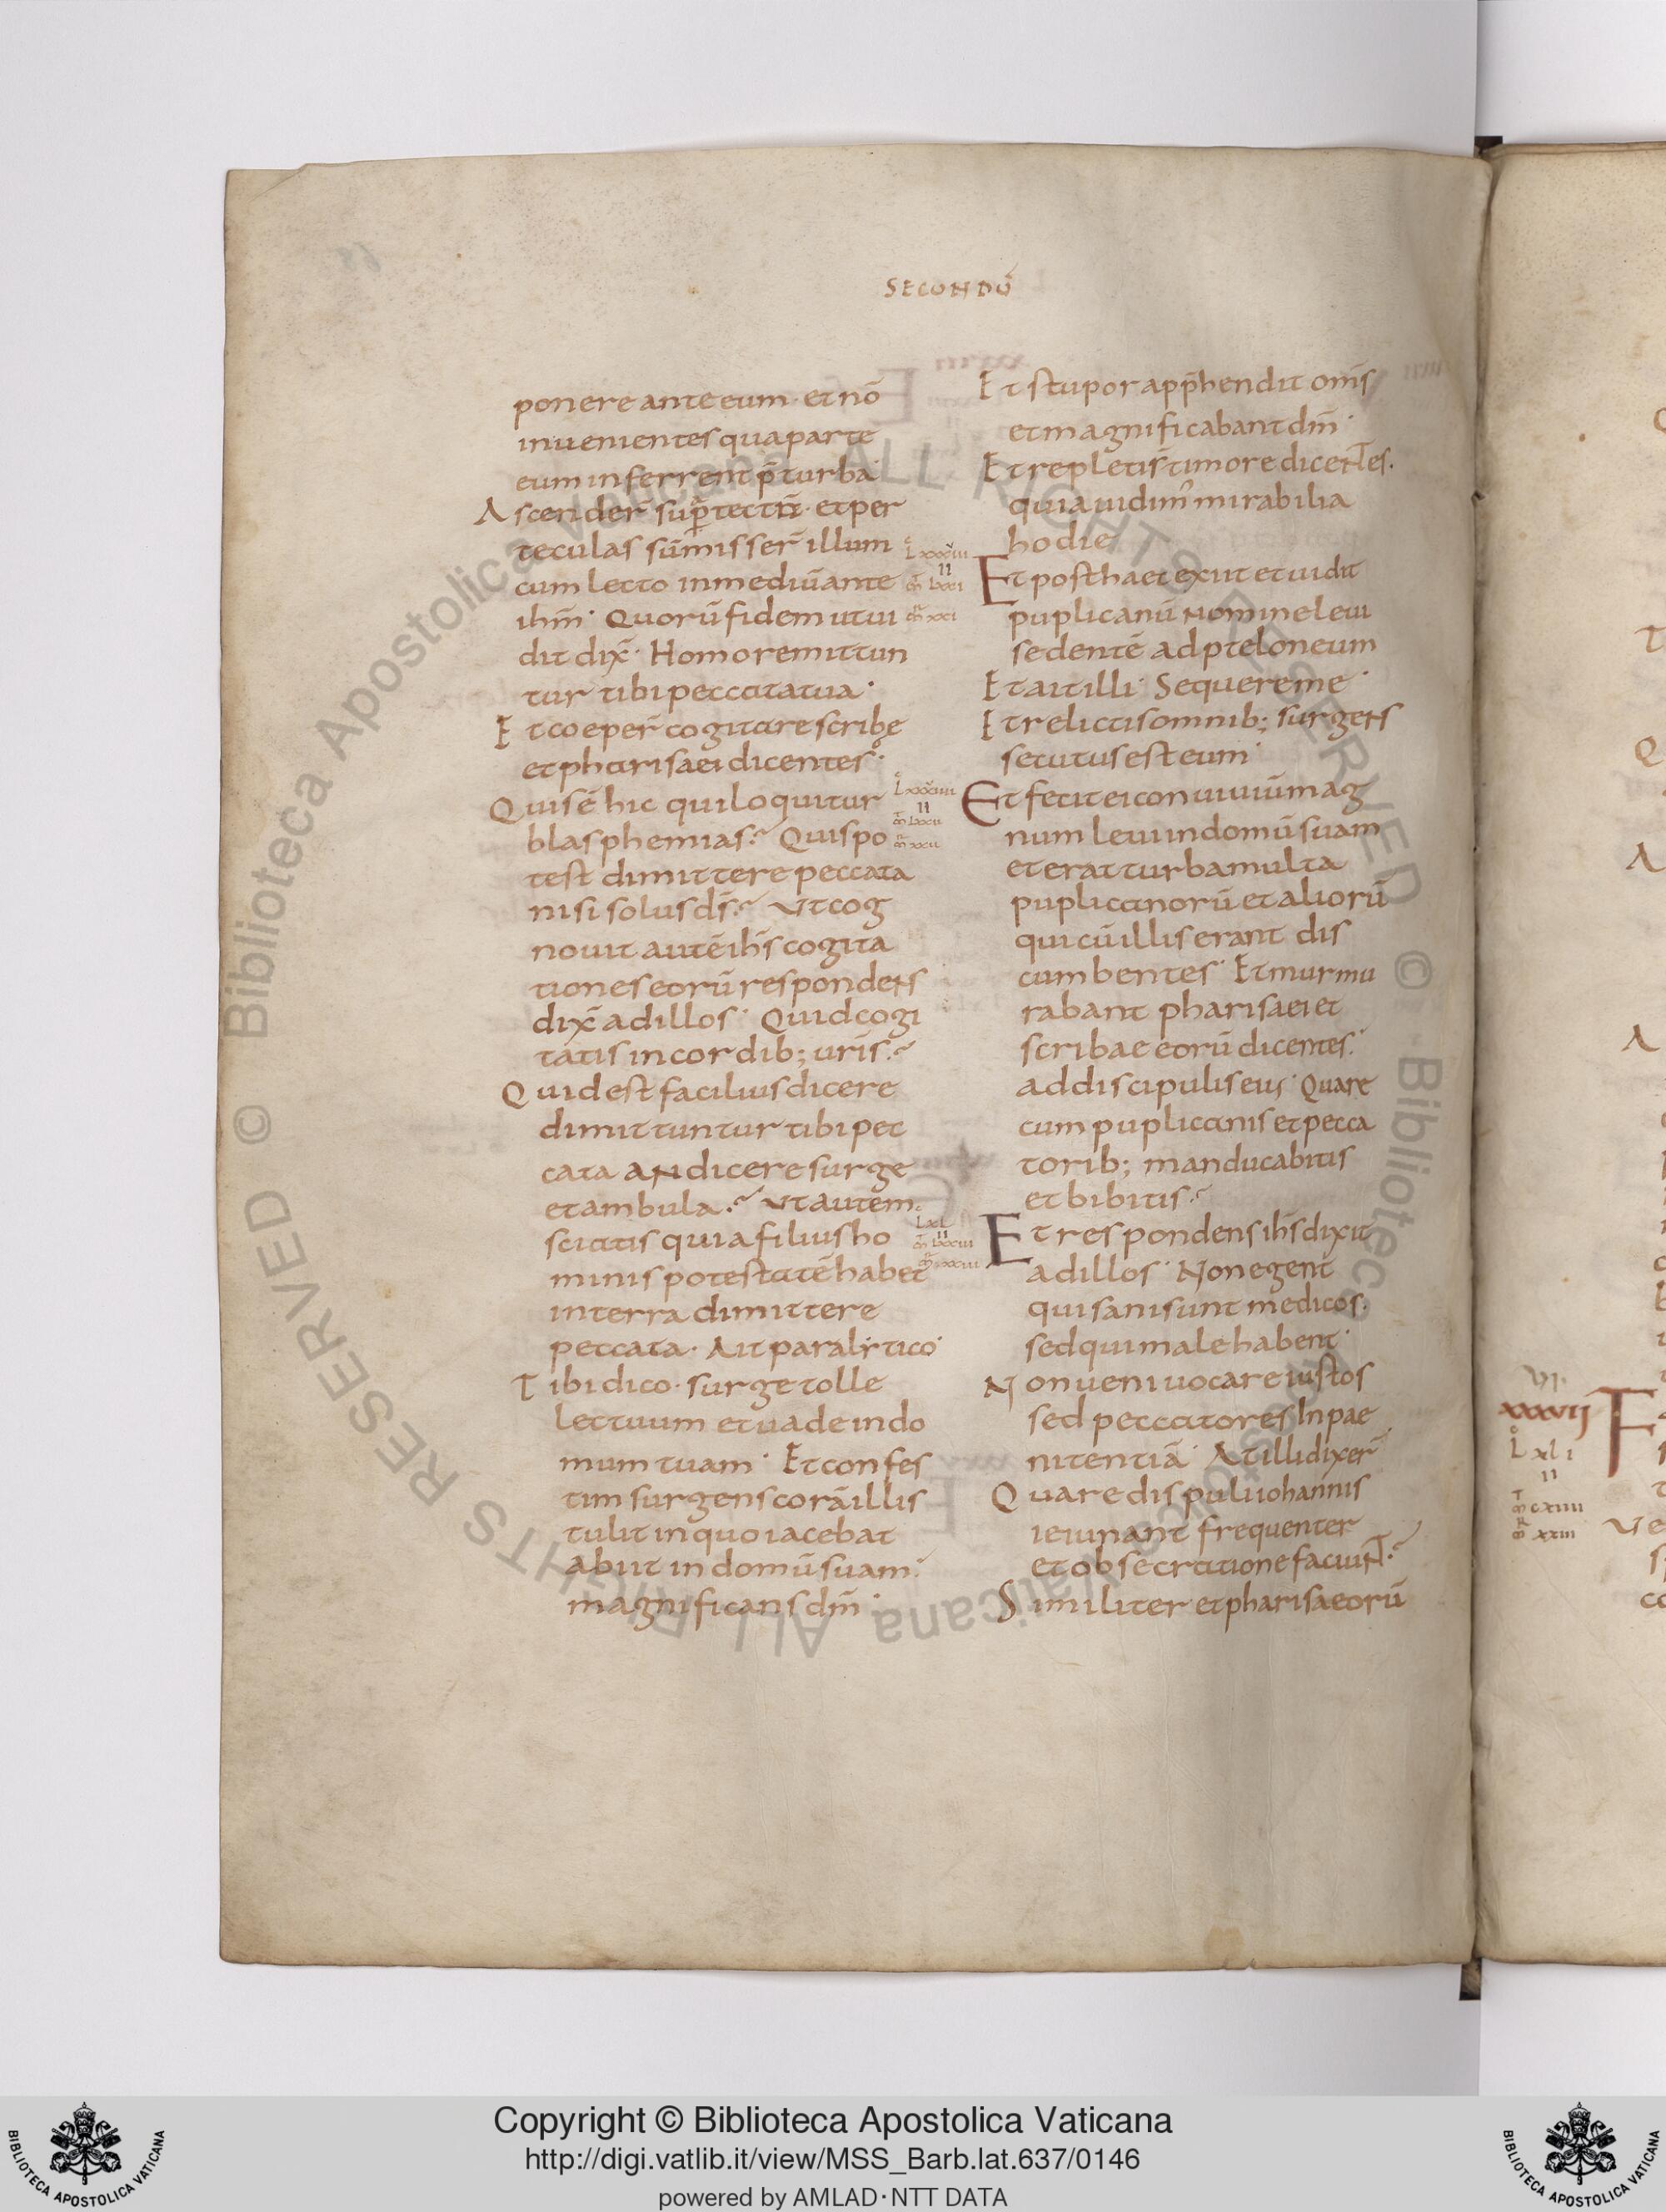 SECONDŪ
ponere ante eum· et nō
inuenientes qua parte
eum inferrent p̄ turba·
Ascender̄ suꝑ tectū· et per
teculas sūmisser̄ illum
cum lecto inmediū ante
ihm̄· Quorū fidem ut ui
dit dix̄· Homo remittun
tur tibi peccata tua·
Et coeper̄ cogitare scribę
et pharisaei dicentes·
Quis ē hic qui loquitur
blasphemias? Quis po
test dimittere peccata
nisi solus ds̄? Ut cog
nouit autē ihs̄ cogita
tiones eorū respondens
dix̄ ad illos· Quid cogi
tatis in cordib; uris̄?
Quid est facilius dicere
dimittuntur tibi pec
cata an dicere surge
et ambula? Ut autem
sciatis quia filius ho
minis potestatē habet
in terra dimittere
peccata· Ait paralitico·
Tibi dico· surge tolle
lectuum et uade in do
mum tuam· Et confes
tim surgens corā illis
tulit in quo iacebat
abiit in domū suam
magnificans dm̄·
Et stupor app̄hendit omīs
et magnificabant dm̄·
Et repleti s̄ timore dicentes·
quia uidim' mirabilia
hodie
Et post haec exiit et uidit
puplicanū nomine leui
sedentē ad pteloneum
Et ait illi· Sequere me·
Et relictis omnib; surgens
secutus est eum·
Et fecit ei conuiuiū mag
num leui in domū suam
et erat turba multa
puplicanorū et aliorū
qui cū illis erant dis
cumbentes· Et murmu
rabant pharisaei et
scribae eorū dicentes·
ad discipulis eius· Quare
cum puplicanis et pecca
torib; manducabitis
et bibitis?
Et respondens ihs̄ dixit
ad illos· Non egent
qui sani sunt medicos·
sed qui male habent·
Non ueni uocare iustos
sed peccatores In pae
nitentiā· At illi dixer̄
Quare dis puli iohannis
ieiunant frequenter
et obsecratione faciunt?
Similiter et pharisaeorū
xxxvij
Copyright © Biblioteca Apostolica Vaticana
http://digi.vatlib.it/view/MSS_Barb.lat.637/0146
powered by AMLAD·NTT DATA
BIBLIOTECA APOSTOLICA VATICANA
BIBLIOTECA APOSTOLICA VATICANA